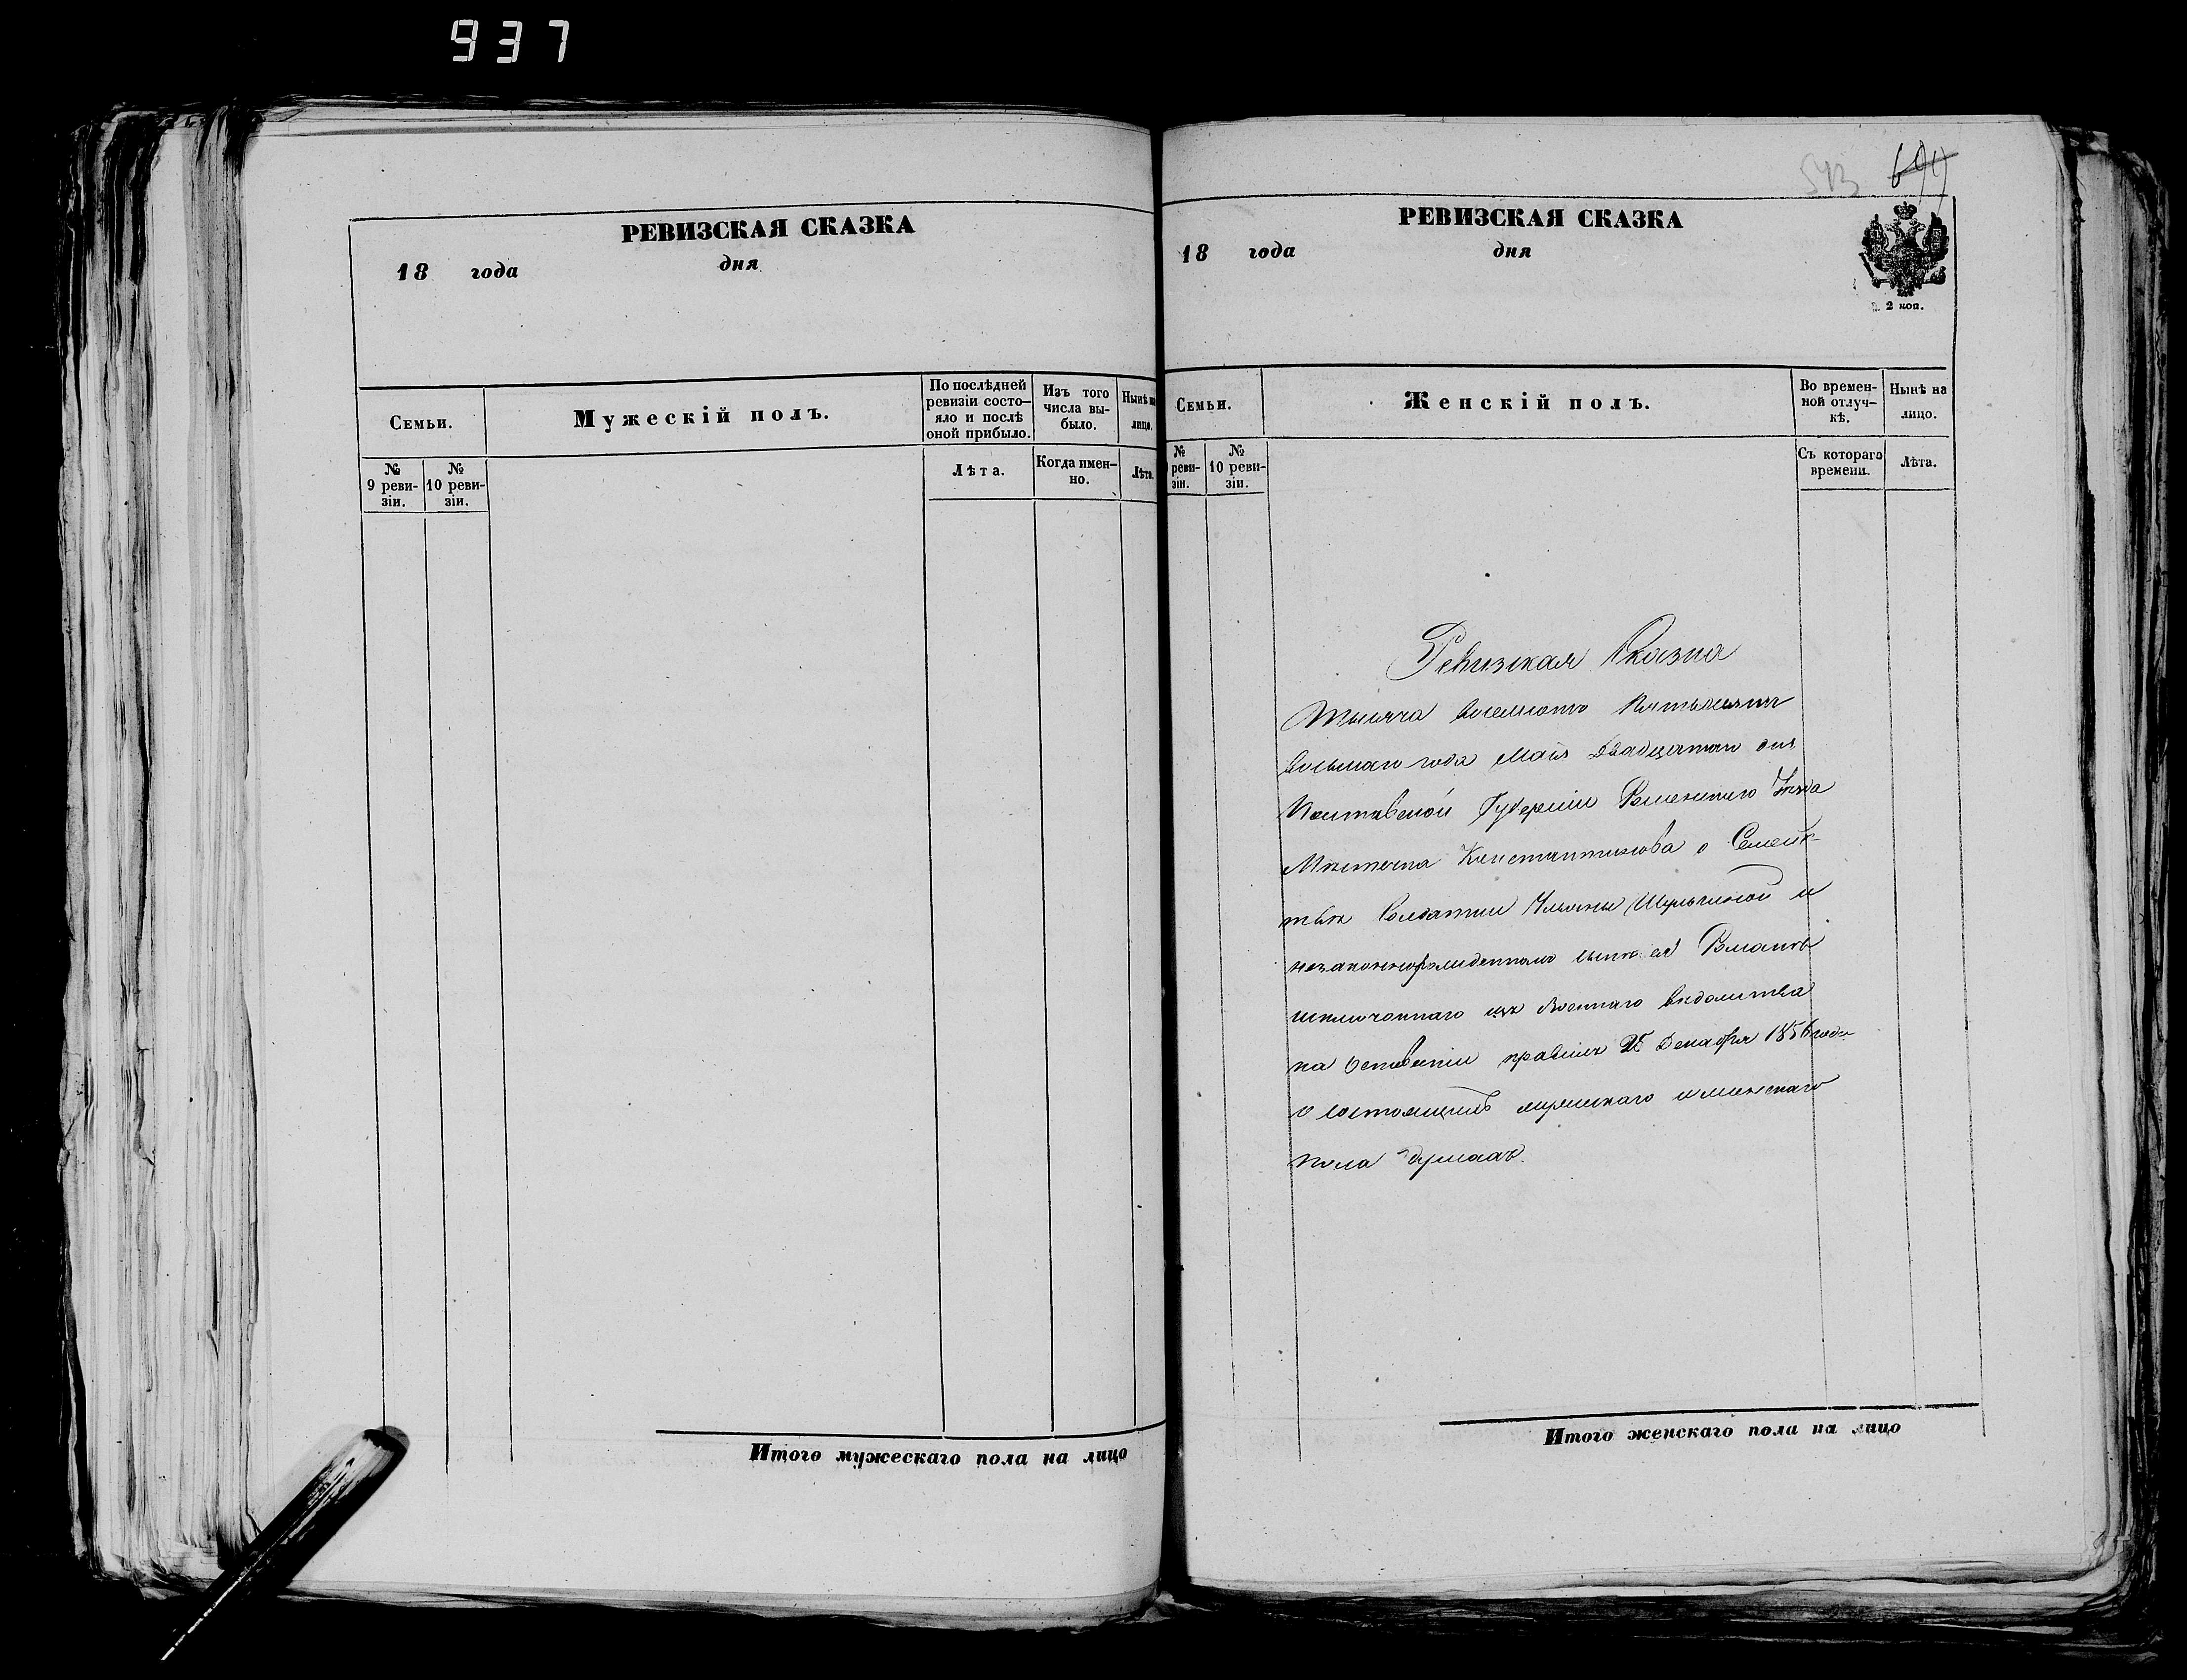 937
РЕВИЗСКАЯ СКАЗКА
18 года дня
Семьи.
Мужескій полъ.
По послѣдней ревизіи состо-яло и послѣ оной прибыло.
Изъ того числа вы-было.
Нынѣ на лицо.
№ 9 реви-зіи.
№ 10 реви-зіи.
Лѣта.
Когда имен-но.
Лѣта.
Итого мужескаго пола на лицо
543
РЕВИЗСКАЯ СКАЗКА
18 года дня
2 коп.
Семьи.
Женскій полъ.
Во времен-ной отлуч-кѣ.
Нынѣ на лицо.
№ реви-зіи.
№ 10 реви-зіи.
Съ котораго времени.
Лѣта.
Ревизская Сказка
Тысяча восемсотъ пятьдесятъ
восьмаго года Маія двадцатаго дня
Полтавской Губерніи Роменскаго Уѣзда
Мѣстечка Константинова о Семей-
твѣ Солдатки Ульяны Шульгиной и
незаконнорожденномъ сынѣ ея Романѣ
исключеннаго изъ Военнаго вѣдомства
на основаніи правилъ 25 Декабря 1856 года
о состоящихъ мужескаго и женскаго
пола душахъ.
Итого женскаго пола на лицо